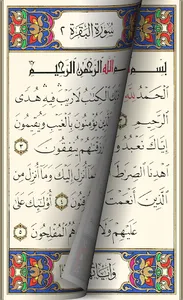 سورة البقرة ٢
بسم الله الرحمن الرحيم
الحمد لله الكتب لا ريب فيه هدى
الرحيم يؤمنون بالغيب ويقيمون
إياك نعبد و ينفقون ٣
اهدنا الصراط بما أنزل إليك وما أنزل من
الذين أنعمت ٤ أولئك على
عليهم ولا هم المفلحون ٥
وآياتها